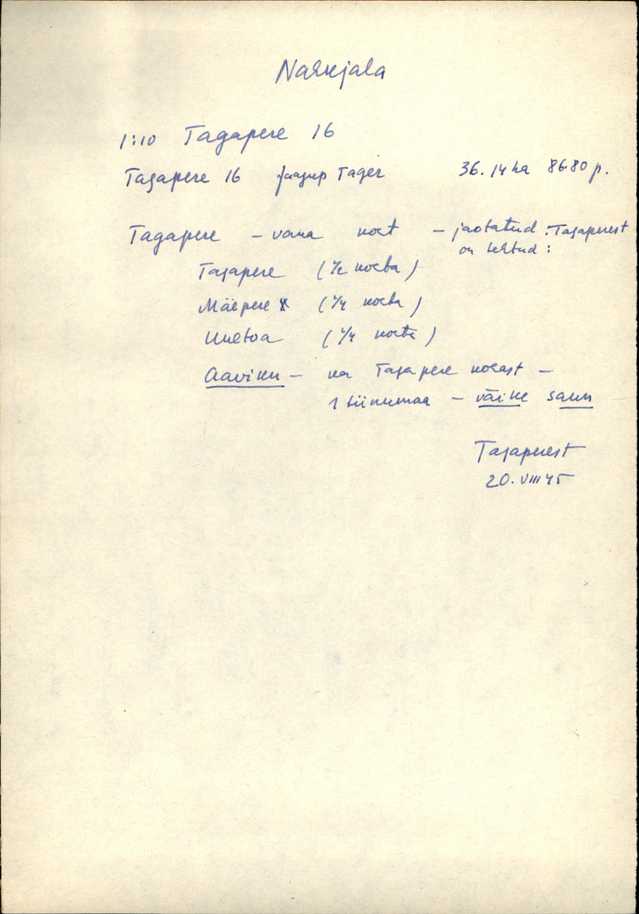 Nakkjala
1:10 Tagapere 16
Tagapere 16 Jaagup Tager 36.14 ha 86.80 p.
Tagapere – vana koht – jaotatud. Tagaperest
on tehtud:
Tagapere (1/2 kohta)
Mäepere (1/4 kohta)
Uuetoa (1/4 kohta)
Aaviku – ka Tagapere kohast –
1 tiinumaa – väike saun
Tagaperest
20. VIII 45